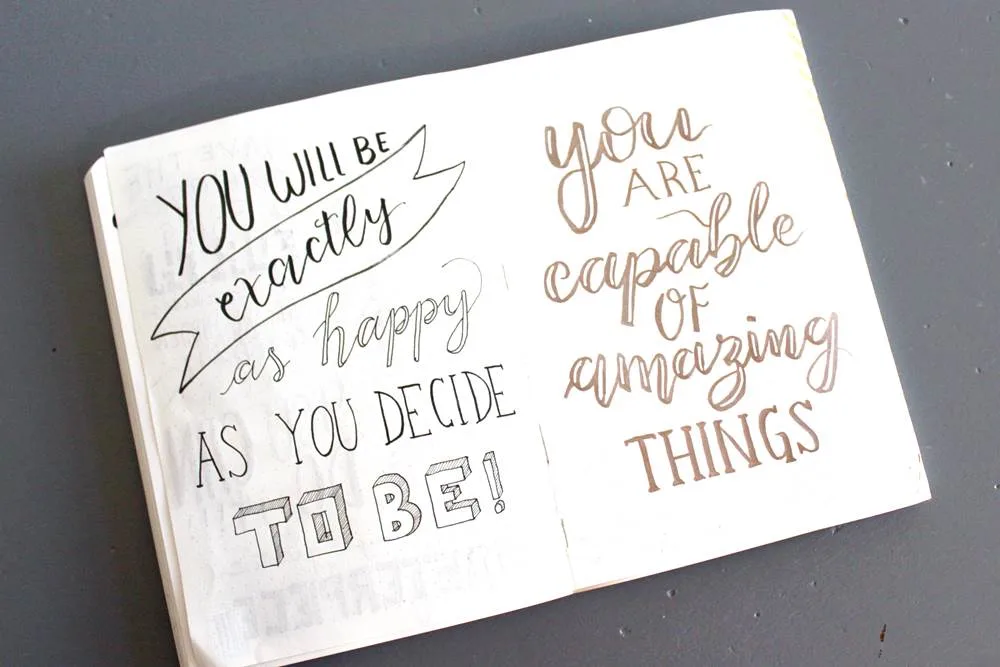 YOU WILL BE
exactly
as happy
AS YOU DECIDE
TO BE!
you
ARE
capable
OF
amazing
THINGS